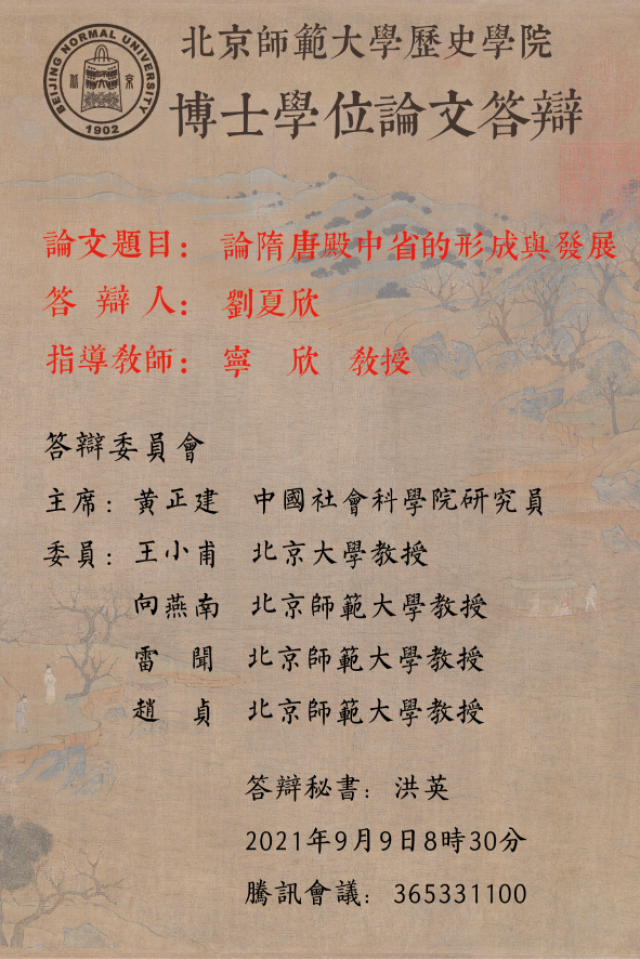 BEIJING NORMAL UNIVERSITY
1902
北京師範大學歷史學院
博士學位論文答辯
論文題目：論隋唐殿中省的形成與發展
答辯人：劉夏欣
指導教師：寧欣 教授
答辯委員會
主席：黃正建 中國社會科學院研究員
委員：王小甫 北京大學教授
向燕南 北京師範大學教授
雷聞 北京師範大學教授
趙貞 北京師範大學教授
答辯秘書：洪英
2021年9月9日8時30分
騰訊會議：365331100